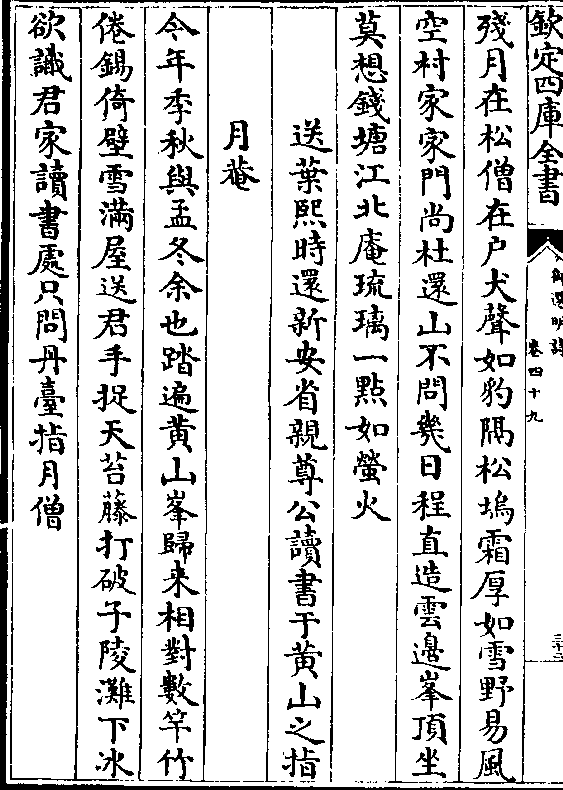 欽定四庫全書
御選明詩
卷四十九
三十二
殘月在松僧在户犬聲如豹隔松塢霜厚如雪野易風
空村家家門尚杜還山不問幾日程直造雲邊峯頂坐
莫想錢塘江北庵琉璃一點如螢火
送葉熙時還新安省親尊公讀書于黄山之指
月菴
今年季秋與孟冬余也踏遍黄山峯歸来相對數竿竹
倦錫倚壁雪滿屋送君手捉天苔藤打破子陵灘下冰
欲識君家讀書處只問丹臺指月僧